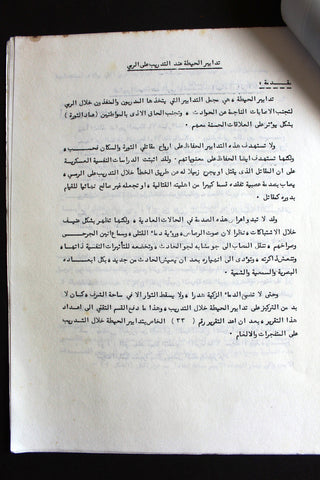 تدابير الحيطة عند التدريب على الرمي
مقدمة :
تدابير الحيطة هي مجمل التدابير التي يتخذها المدربون والمنفذون خلال الرمي
لتجنب الاصابات الناتجة عن الحوادث ، وتجنب الحاق الاذى بالمواطنين (عناد الثورة)
بشكل يؤثر على العلاقات الحسنة معهم .
ولا تستهدف هذه التدابير الحفاظ على ارواح مقاتلي الثورة والسكان فحسب ،
ولكنها تستهدف ايضا الحفاظ على معنوياتهم . ولقد اثبتت الدراسات النفسية العسكرية
على ان المقاتل الذي يقتل او يجرح زميلا له عن طريق الخطأ خلال التدريب على الرمي ،
يصاب بصدمة عصبية تفقده قسطا كبيرا من اهليته القتالية ، او تجعله غير صالح نهائيا للقيام
بدوره كمقاتل .
ولقد لا تبدو اعراض هذه الصدمة في الحالات العادية ، ولكنها تظهر بشكل عنيف
خلال الاشتباكات ، نظرا لان صوت الرصاص ورؤية دماء القتلى وسماع انين الجرحى
وصراخهم ، تنقل المصاب الى جو مشابه لجو الحادث ، وتخضعه للتأثيرات النفسية ذاتها ،
وتنعش ذاكرته ، وتؤدي الى انهياره بعد ان يعيش الحادث من جديد ، بكل ابعاده
البصرية والسمعية والشمية .
وحتى لا تضيع الدماء الزكية هدرا ، ولا يسقط الثوار الا في ساحة الشرف ، كان لا
بد من التركيز على تدابير الحيطة خلال التدريب ، وهذا ما دفع القسم الثقافي الى اعداد
هذا التقرير ، بعد ان اعد التقرير رقم ( ٣٣ ) الخاص بتدابير الحيطة خلال التدريب
على المتفجرات والالغام .